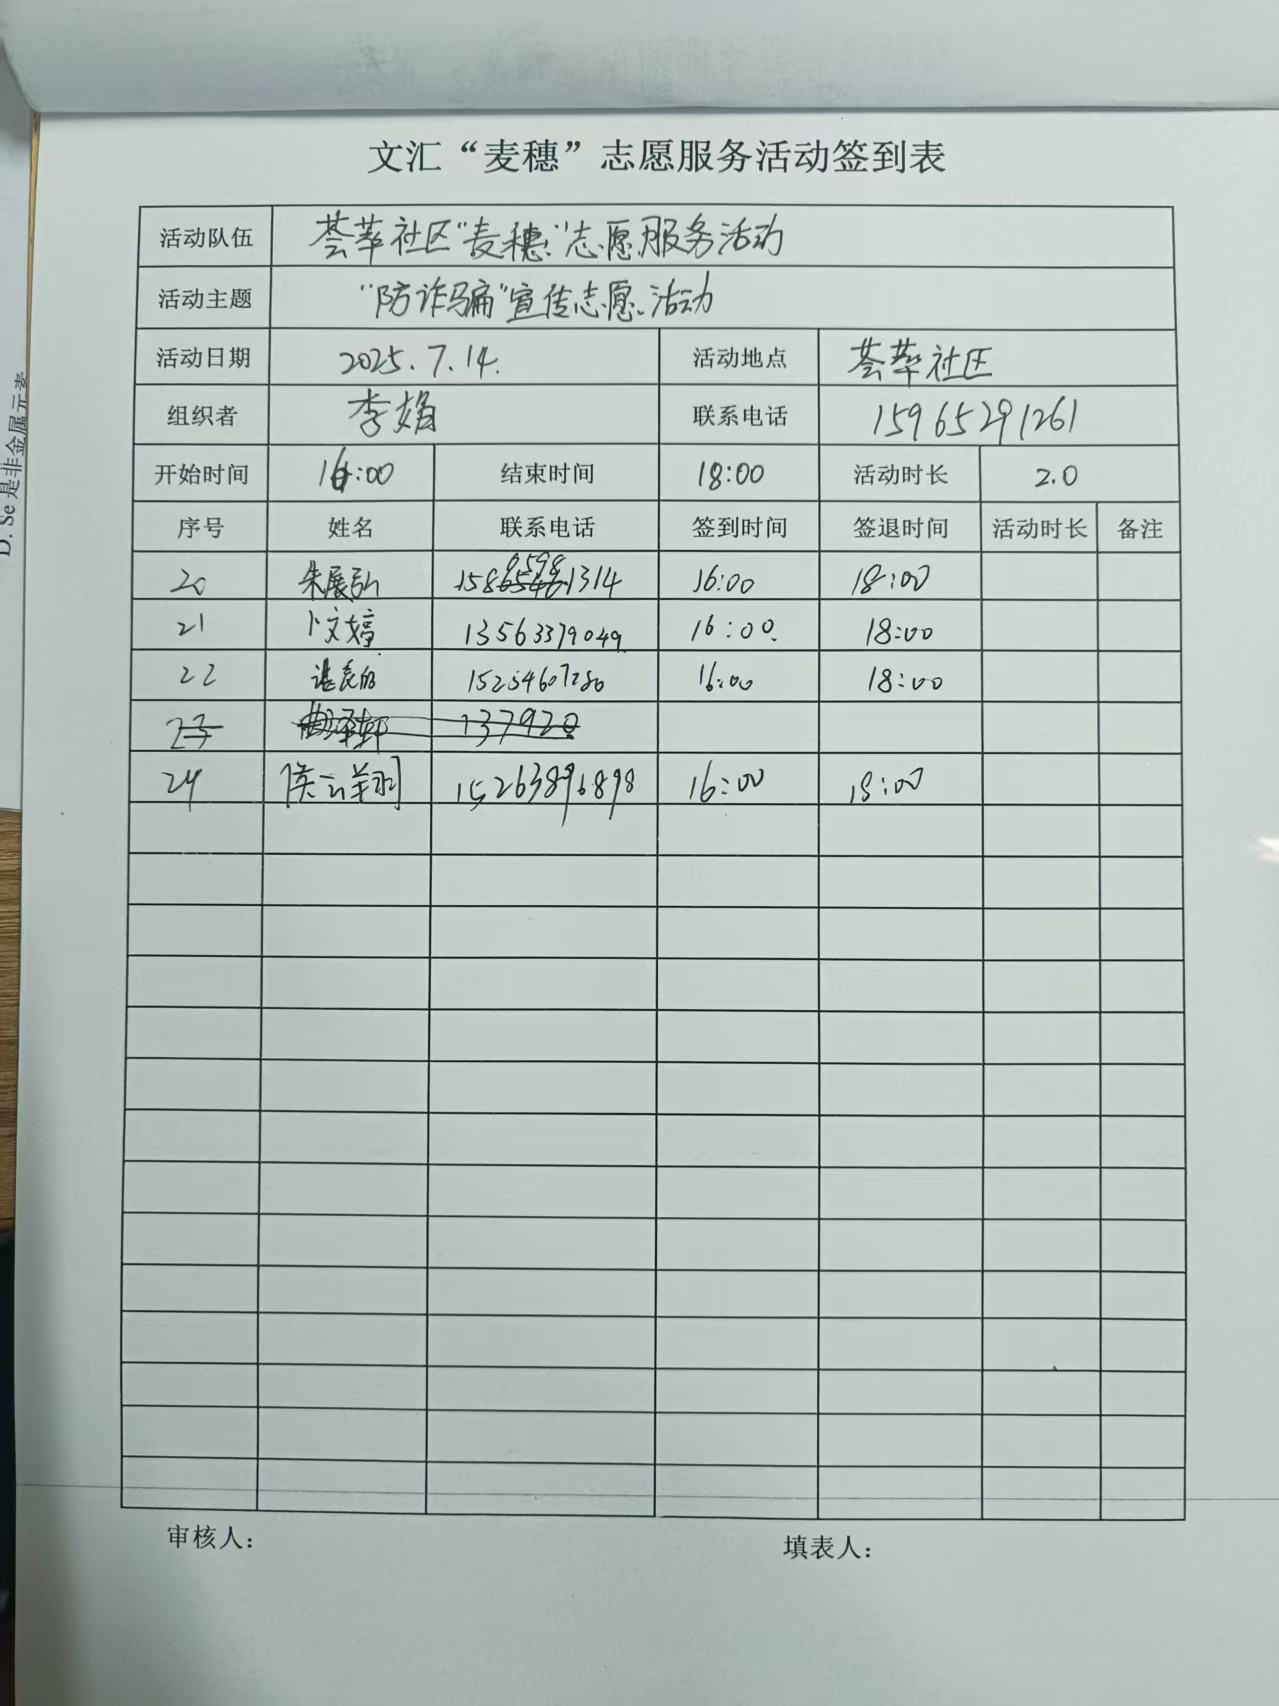 文汇“麦穗”志愿服务活动签到表
活动队伍 荟萃社区“麦穗”志愿服务活动
活动主题 “防诈骗”宣传志愿活动
活动日期 2025.7.14. 活动地点 荟萃社区
组织者 李娟 联系电话 15965291261
开始时间 16:00 结束时间 18:00 活动时长 2.0
序号 姓名 联系电话 签到时间 签退时间 活动时长 备注
20 朱展弘 16:00 18:00
21 卜文婷 13563379049 16:00 18:00
22 15254607280 16:00 18:00
23 137920
24 侯云翔 15263896898 16:00 18:00
审核人： 填表人：
D. Se 是非金属元素